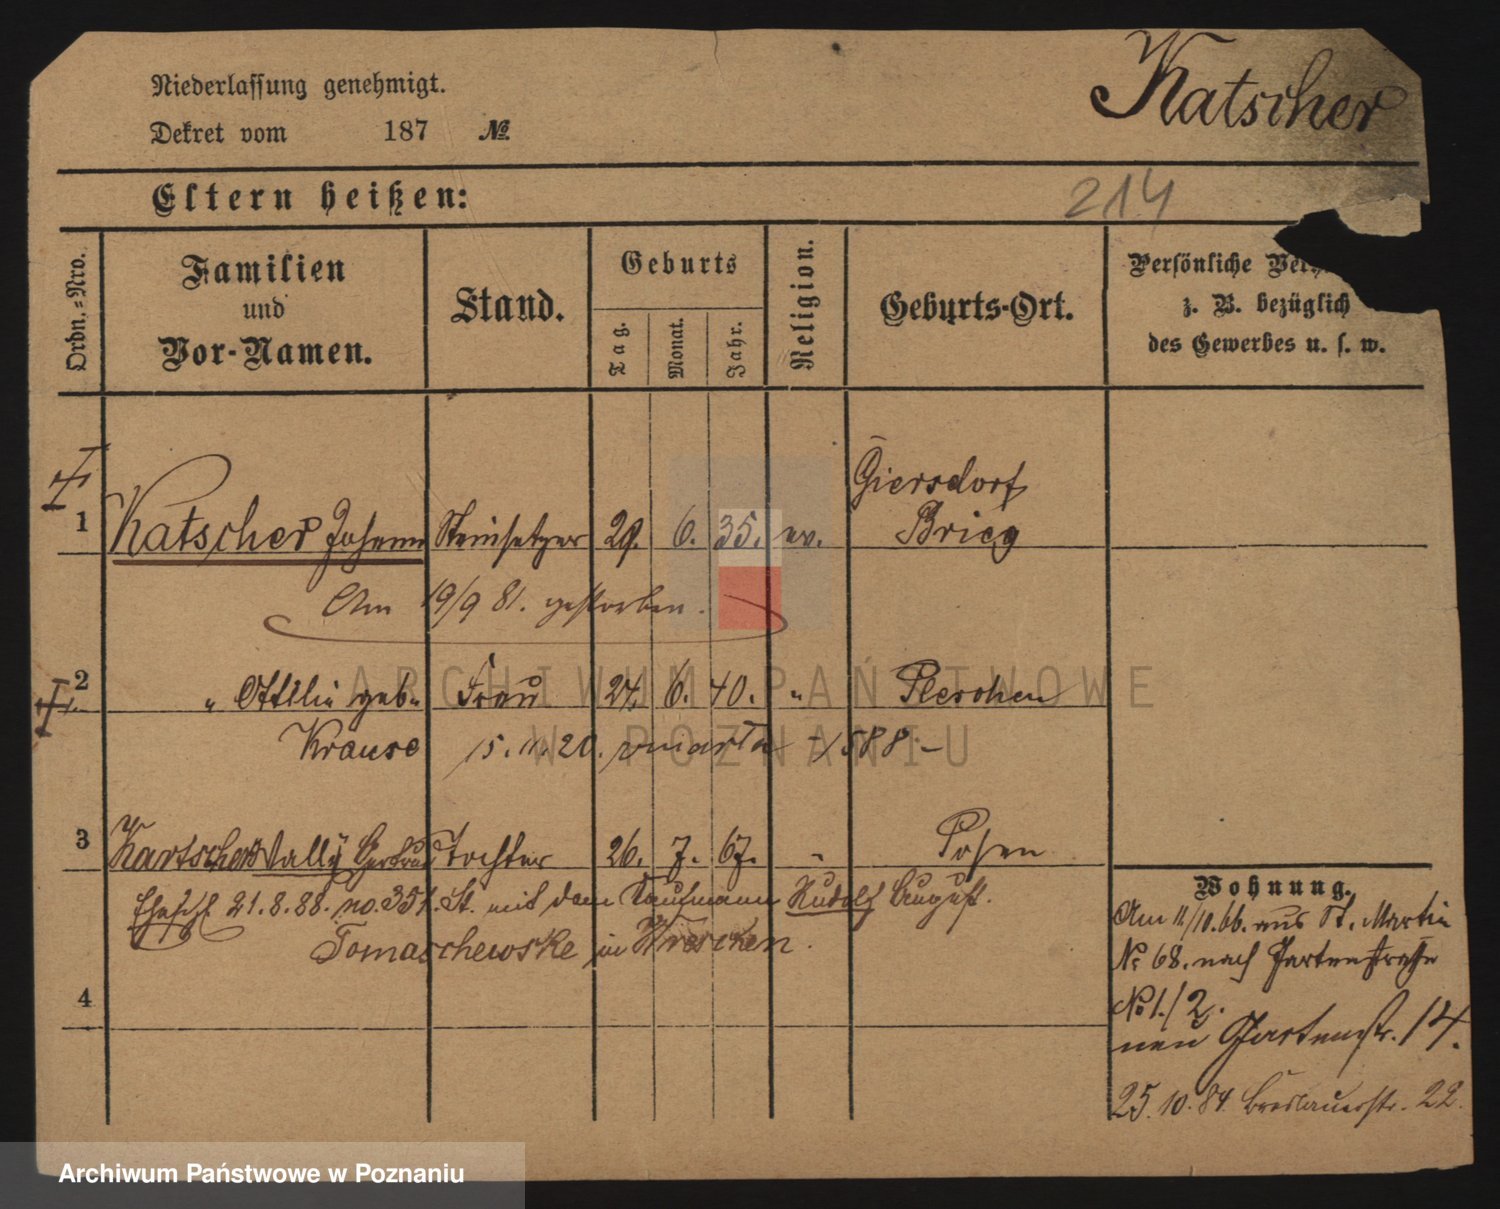 Katscher
Niederlassung genehmigt.
Dekret vom 187 №
Eltern heißen:
214
Ordn.=Nro.
Familien
und
Vor-Namen.
Stand.
Geburts
Tag.
Monat.
Jahr.
Religion.
Geburts-Ort.
Persönliche
z. B. bezüglich
des Gewerbes u. s. w.
Giersdorf
1 Katscher Johann Steinsetzer 29. 6. 35. ev. Brieg
Am 19/9 81. gestorben.
2 " Ottilie geb. Frau 24. 6. 40. " Pleschen
Krause 15. 11. 20. zmarła 1588
3 Kartscher Vally Gertrud Tochter 26. 7. 67. " Posen
21. 8. 88. no. 351. St. mit dem Kaufmann Rudolf August.
Tomaschewske in Wreschen.
4
Wohnung.
Am 11/10. 66. aus St. Martin
№ 68. nach Gartenstraße
№ 1./2.
neu Gartenstr. 14.
25. 10. 84. Breslauerstr. 22.
ARCHIWUM PAŃSTWOWE
W POZNANIU
Archiwum Państwowe w Poznaniu